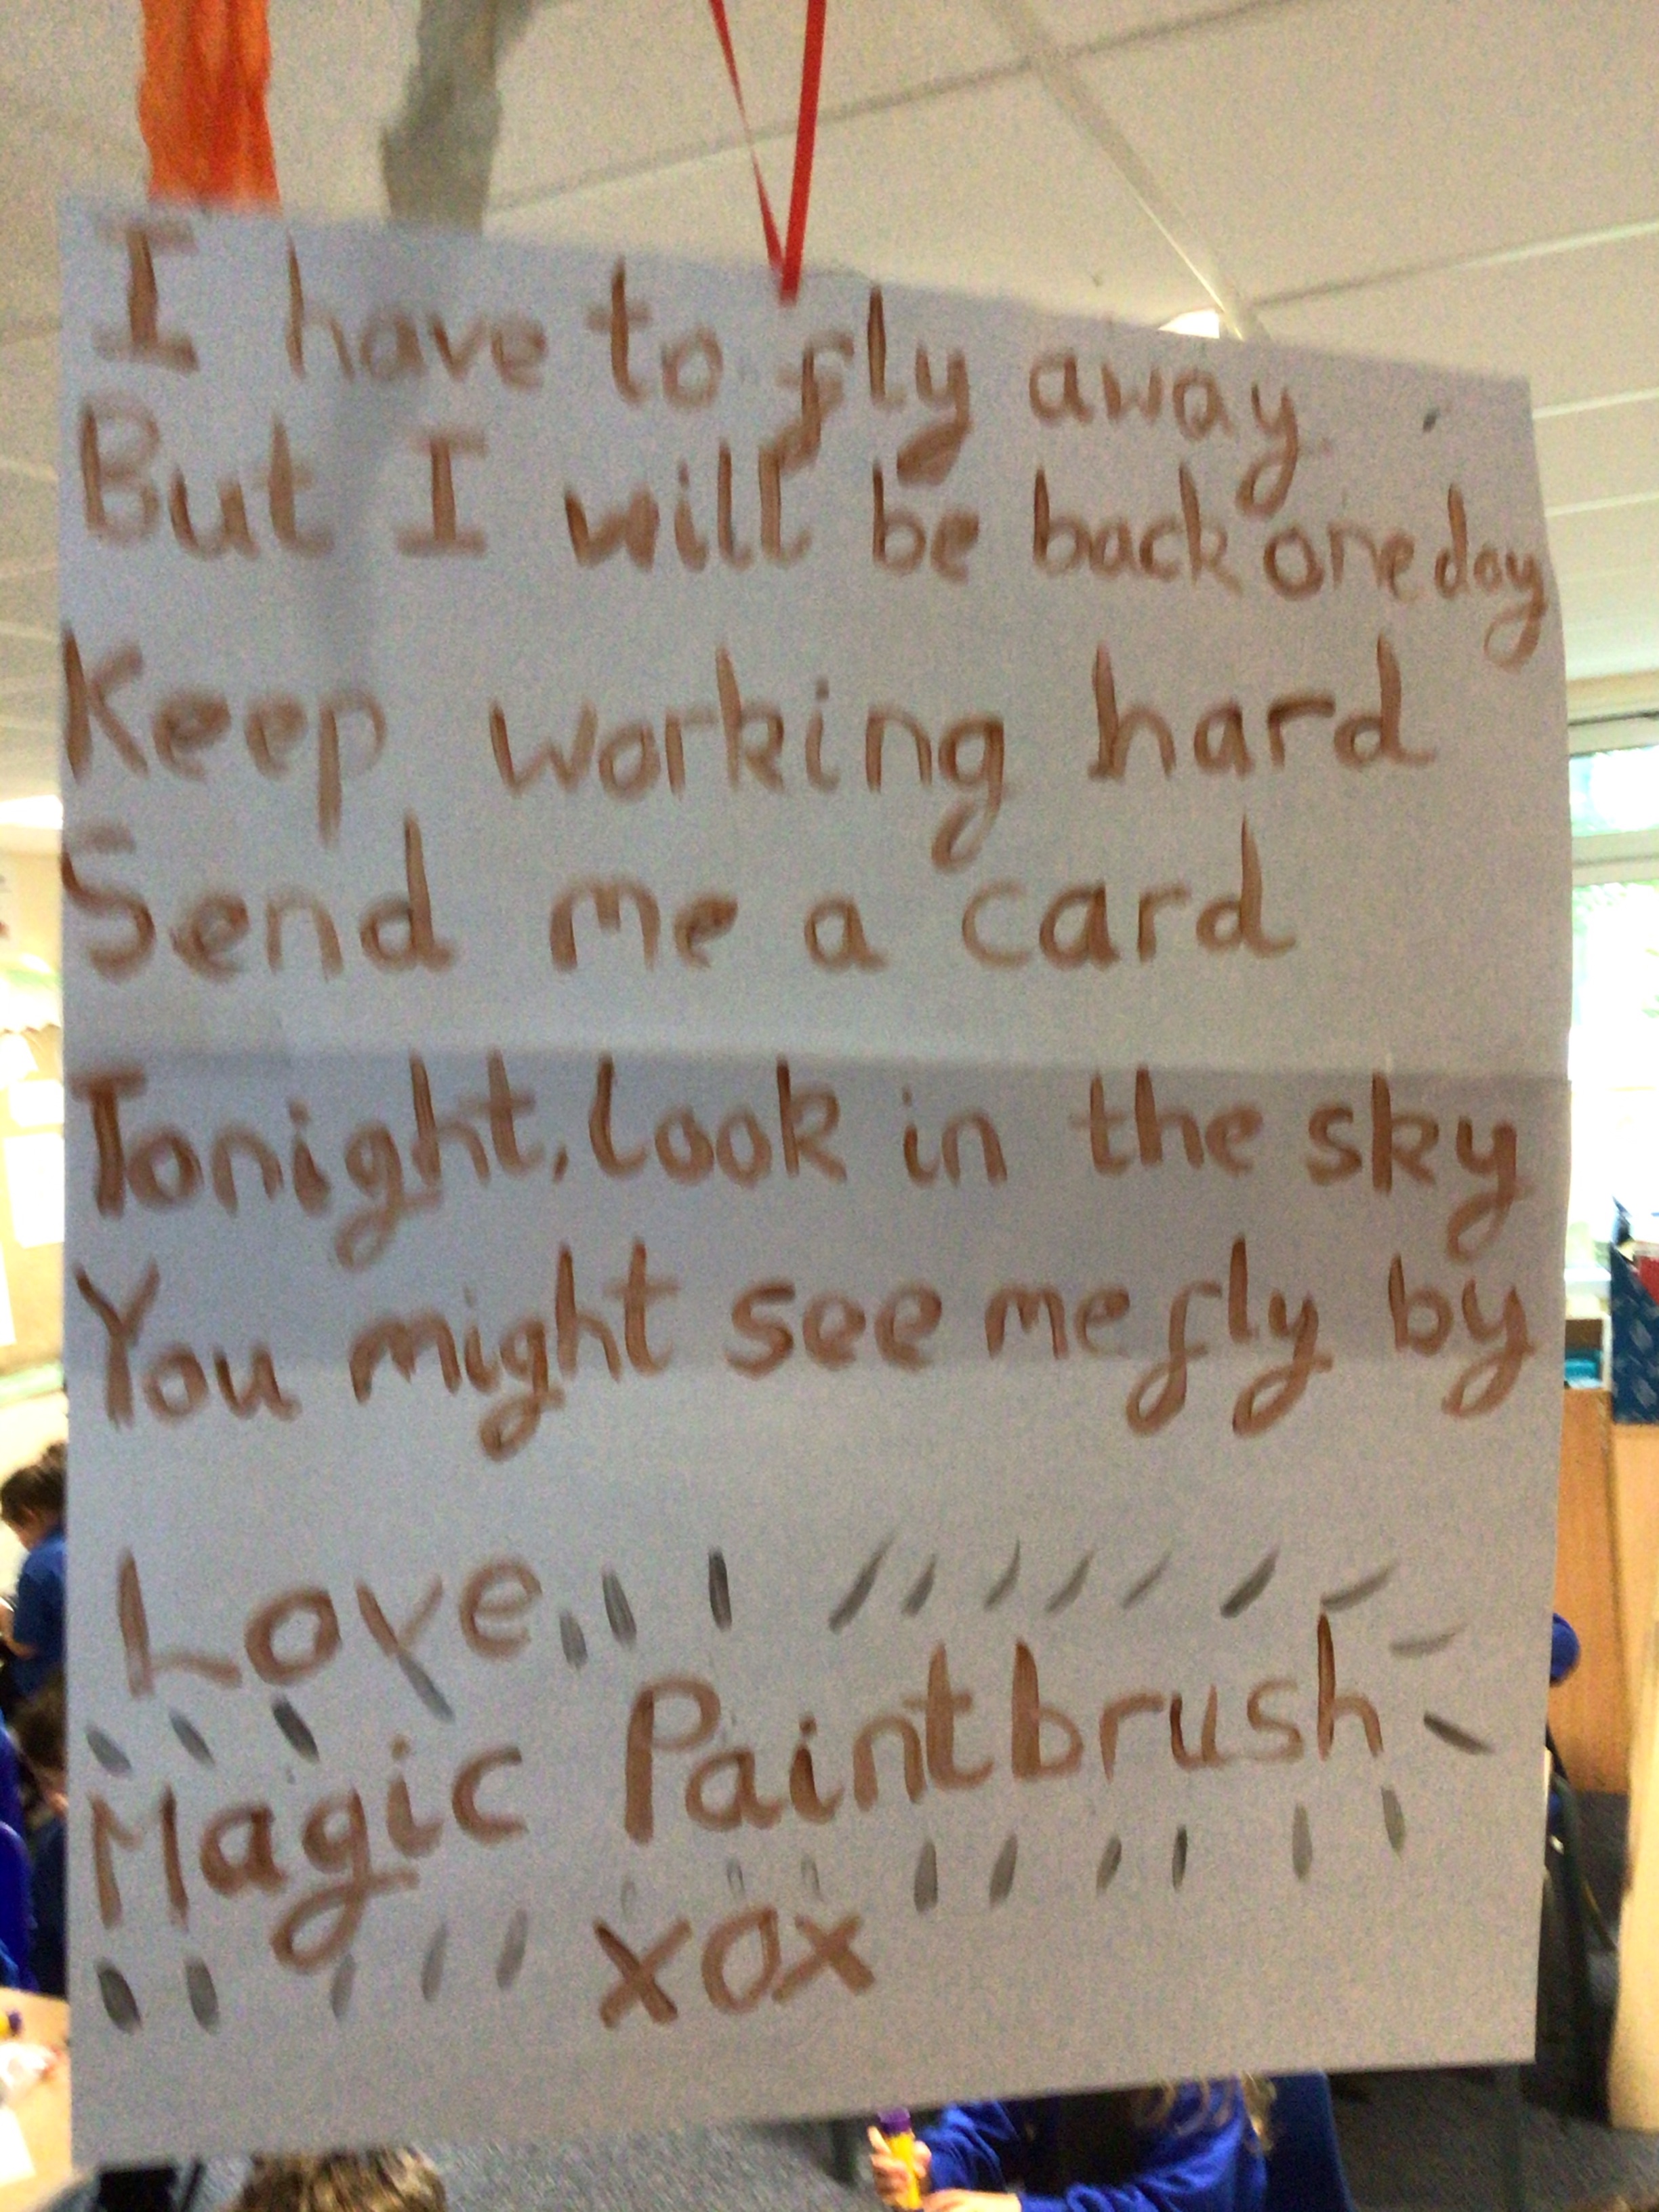 I have to fly away.
But I will be back one day
Keep working hard
Send me a card
Tonight, look in the sky
You might see me fly by
Love
Magic Paintbrush
xox